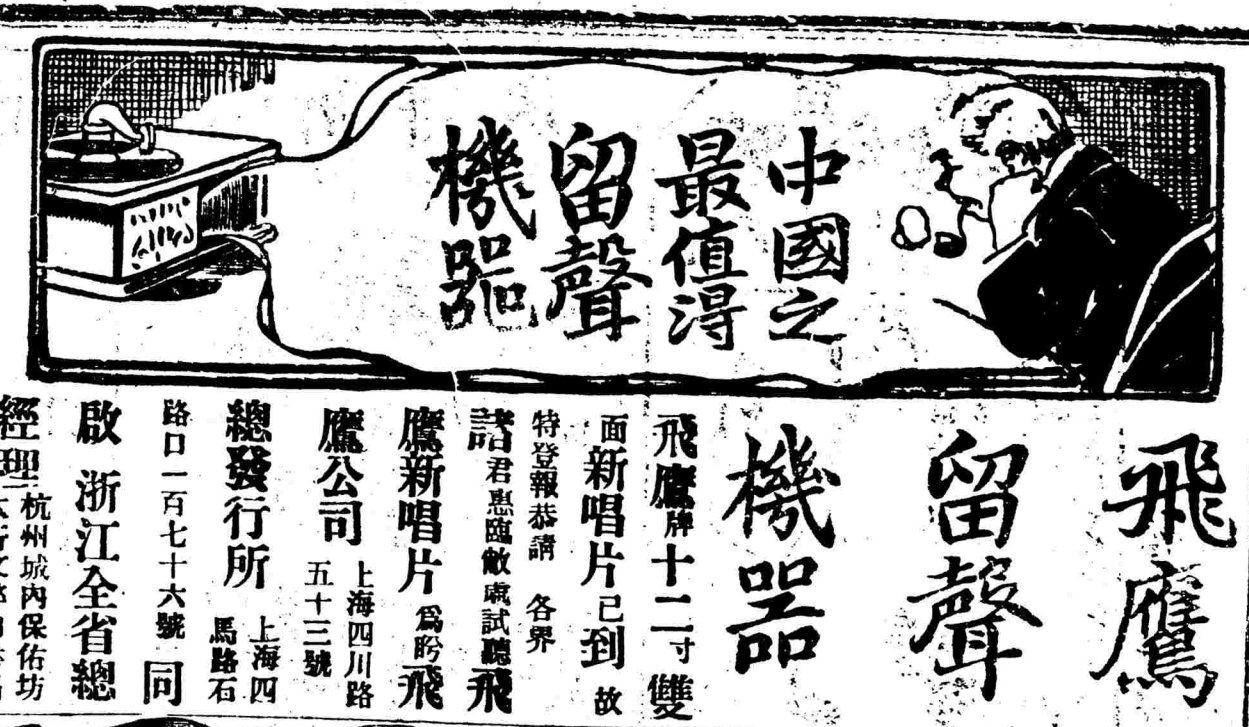 中國之
最值得
留聲
機器
飛鷹
留聲
機器
飛鷹牌十二寸雙
面新唱片已到故
特登報恭請 各界
諸君惠臨敝處試聽飛
鷹新唱片爲盼飛
鷹公司 上海四川路
五十三號
總發行所 上海四
馬路石
路口一百七十六號 同
啟 浙江全省總
經理 杭州城內保佑坊